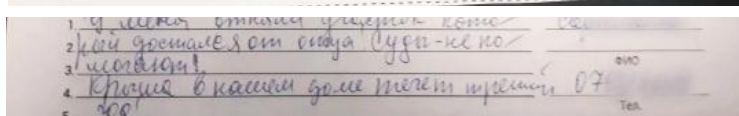 1. У меня отняли участок кото- се
2. рый достался от отца. Суды-не по-
ФИО
3. могают!
4. Крыша в нашем доме течет третий 07
Тел.
5. год